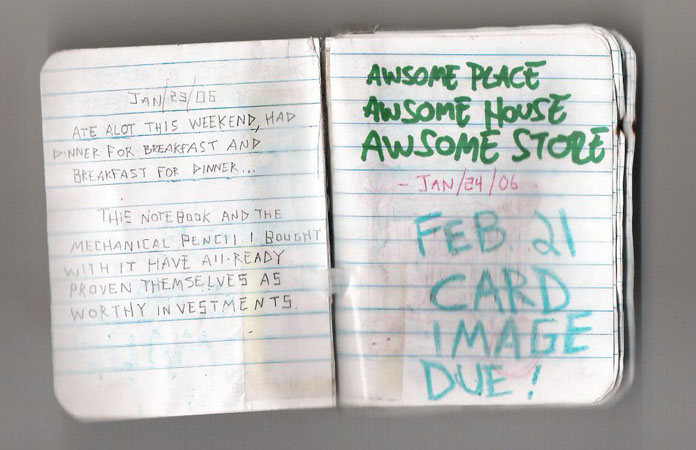 JAN/23/06
ATE ALOT THIS WEEKEND, HAD
DINNER FOR BREAKFAST AND
BREAKFAST FOR DINNER...
THIS NOTEBOOK AND THE
MECHANICAL PENCIL I BOUGHT
WITH IT HAVE All-READY
PROVEN THEMSELVES AS
WORTHY INVESTMENTS.
AWSOME PLACE
AWSOME HOUSE
AWSOME STORE
- JAN/24/06
FEB. 21
CARD
IMAGE
DUE!